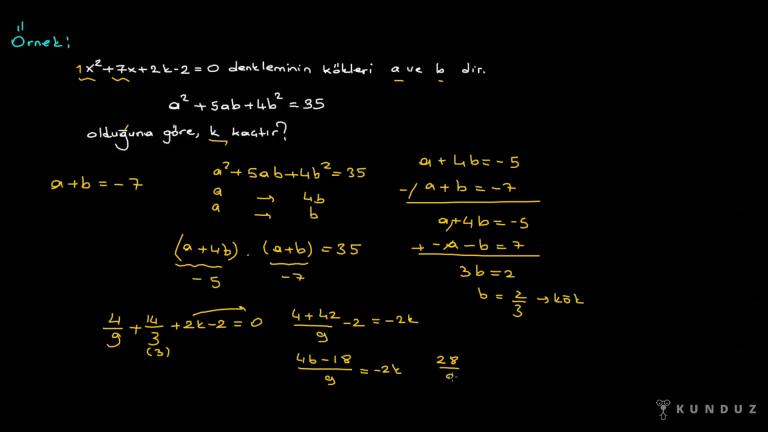 Örnek:
1x²+7x+2k-2=0 denkleminin kökleri a ve b dir.
a²+5ab+4b²=35
olduğuna göre, k kaçtır?
a+b=-7
a²+5ab+4b²=35
a → 4b
a → b
(a+4b).(a+b)=35
-5 -7
a+4b=-5
-/ a+b=-7
a+4b=-5
+ -a-b=7
3b=2
b=2/3 → kök
4/9+14/3+2k-2=0
(3)
(4+42)/9-2=-2k
(46-18)/9=-2k
28/9
KUNDUZ